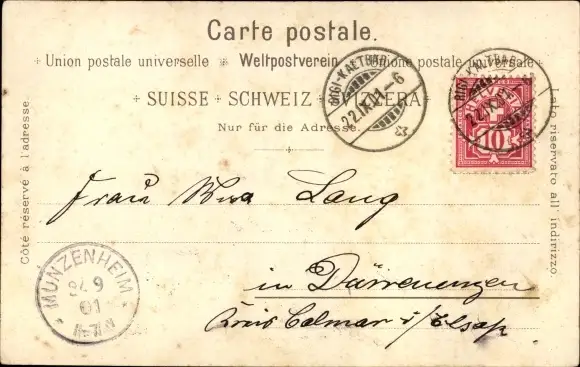 Carte postale.
Union postale universelle Weltpostverein Unione postale universale
SUISSE SCHWEIZ SVIZZERA
Nur für die Adresse.
Côté réservé à l'adresse.
Lato riservato all' indirizzo.
RIGI-KALTBAD
22.IX.01-6
RIGI-KALTBAD
22.IX.01
HELVETIA
10
Frau Wwe Lang
in Dürrenenzen
Kreis Colmar i/Elsass
MUNZENHEIM
9
01